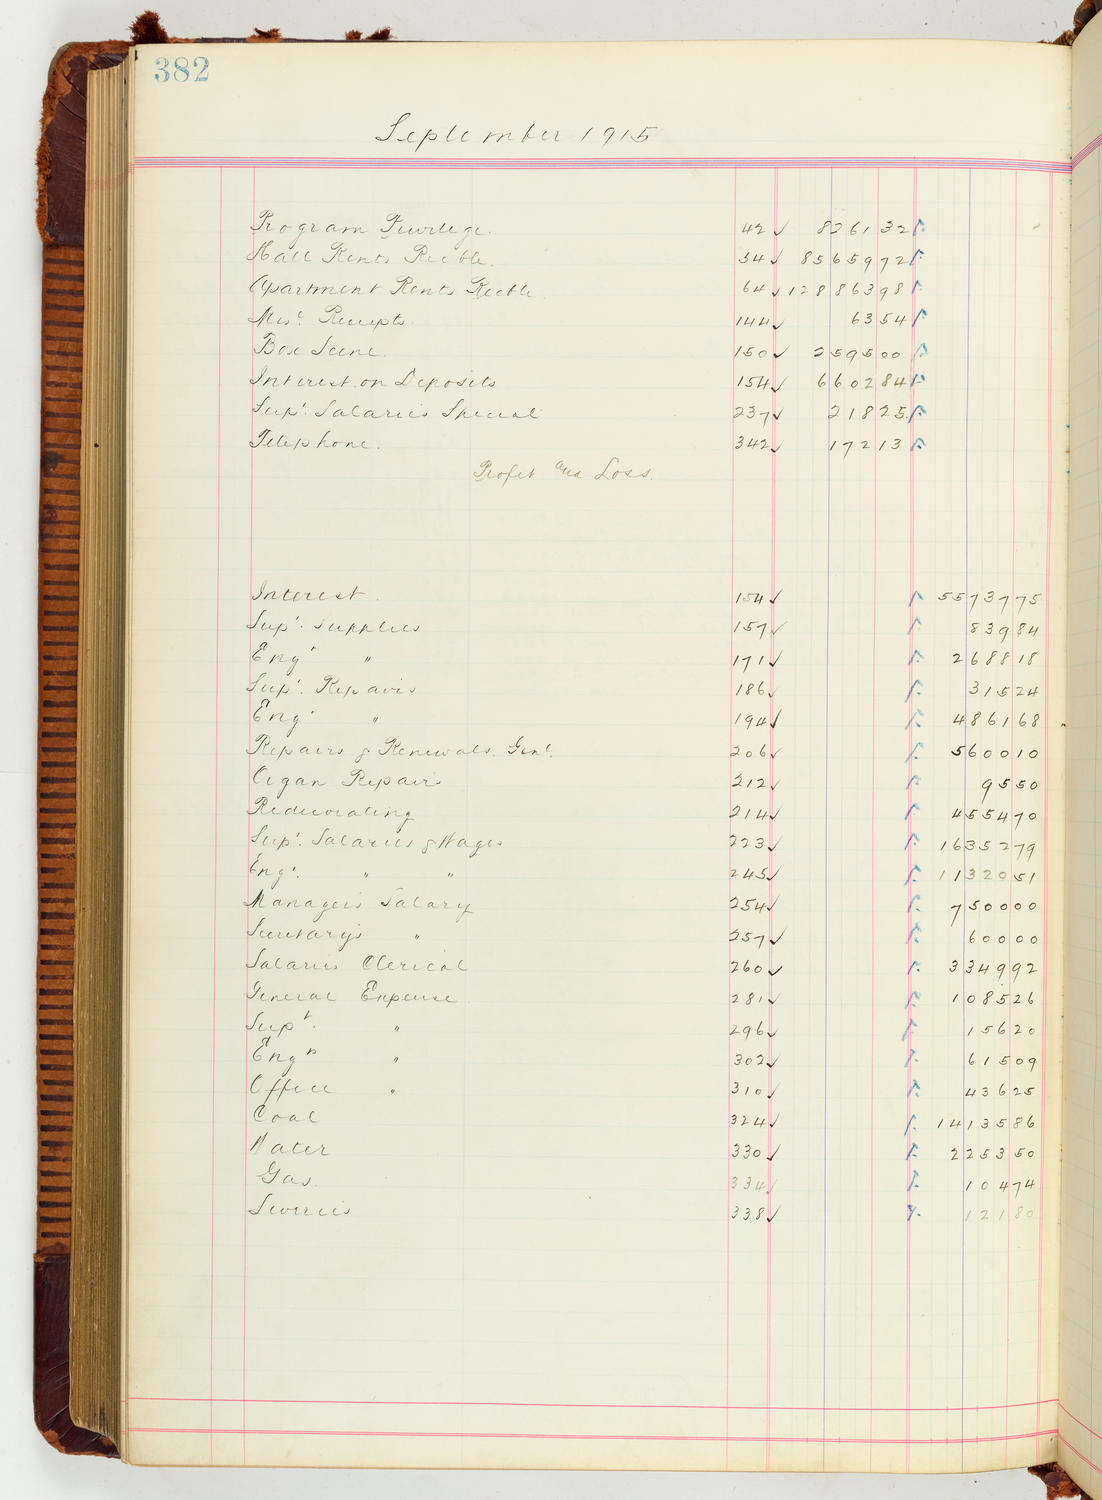 382
September 1915
Program Privilege. 42 ✓ 826132
Hall Rents Rec'ble. 54 ✓ 8565972
Apartment Rents Rec'ble 64 ✓ 12886398
Mis'l Receipts. 144 ✓ 6354
Box Scene. 150 ✓ 259500
Interest on Deposits 154 ✓ 660284
Sup't. Salaries Special 237 ✓ 21825
Telephone. 342 ✓ 17213
Profit and Loss.
Interest. 154 ✓ 5573775
Sup't. Supplies 157 ✓ 83984
Eng'r " 171 ✓ 268818
Sup't. Repairs 186 ✓ 31524
Eng'r " 194 ✓ 486168
Repairs & Renewals. Gen'l. 206 ✓ 560010
Organ Repairs 212 ✓ 9550
Redecorating 214 ✓ 455470
Sup't. Salaries & Wages 223 ✓ 1635279
Eng'r. " " 245 ✓ 1132051
Manager's Salary 254 ✓ 750000
Secretary's " 257 ✓ 60000
Salaries Clerical 260 ✓ 334992
General Expense 281 ✓ 108526
Sup't. " 296 ✓ 15620
Eng'r " 302 ✓ 61509
Office " 310 ✓ 43625
Coal 324 ✓ 1413586
Water 330 ✓ 225350
Gas. 334 ✓ 10474
338 ✓ 12180